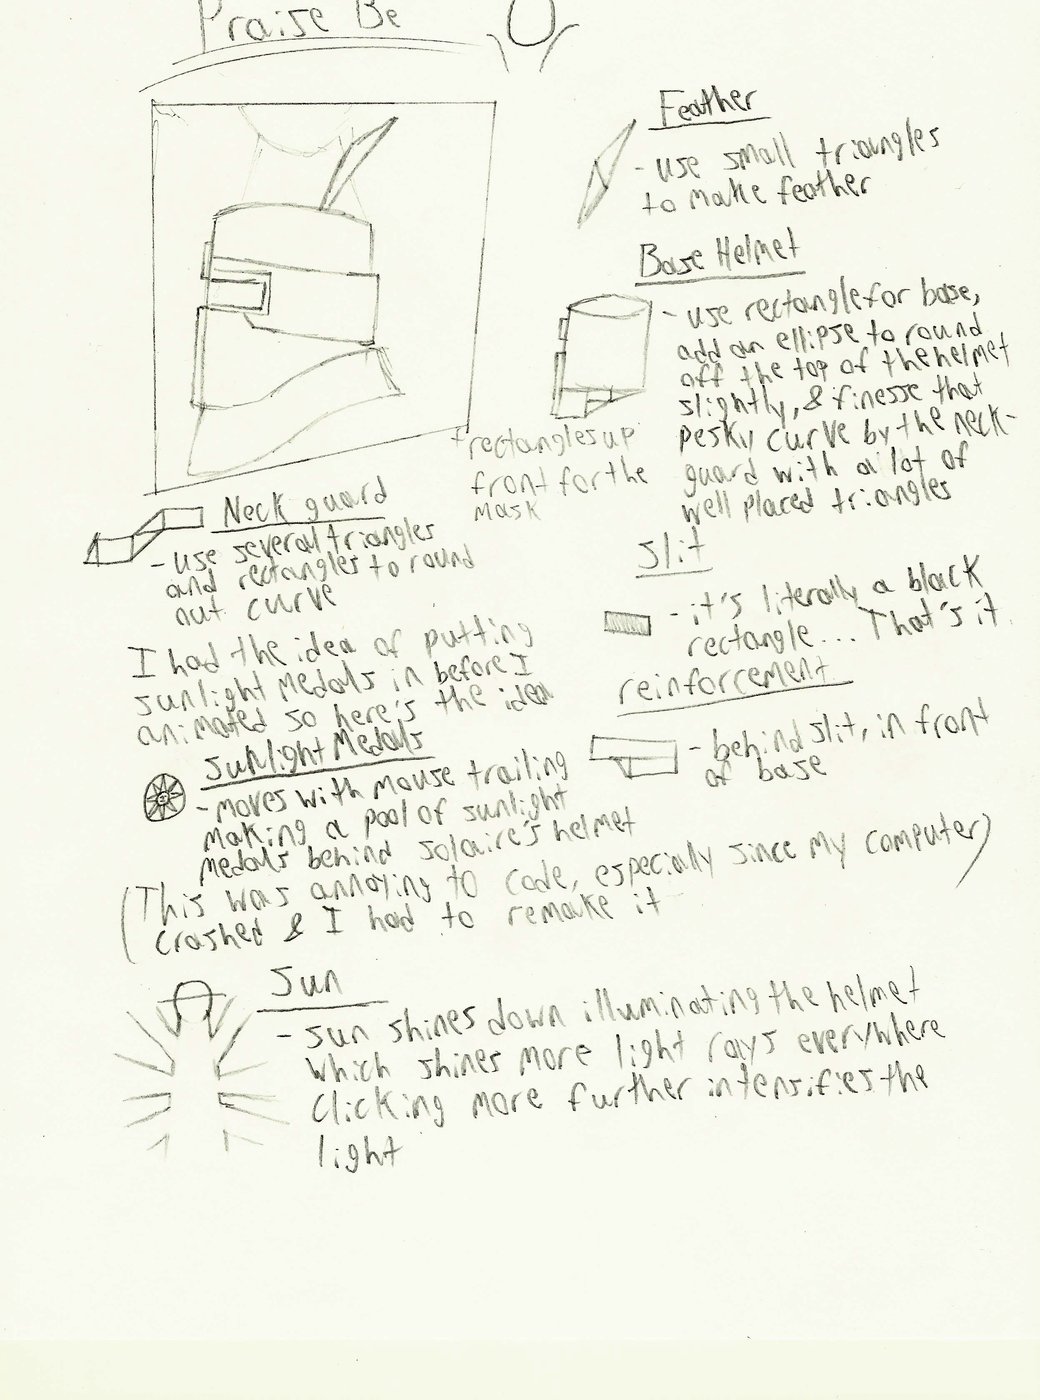 Praise Be
Feather
- use small triangles
to make feather
Base Helmet
- use rectangle for base,
add an ellipse to round
off the top of the helmet
slightly, & finesse that
pesky curve by the neck-
guard with a lot of
well placed triangles
+ rectangles up
front for the
mask
Neck guard
- use several triangles
and rectangles to round
out curve
Slit
- it's literally a black
rectangle... That's it.
reinforcement
- behind slit, in front
of base
I had the idea of putting
sunlight medals in before I
animated so here's the idea
Sunlight Medals
- moves with mouse trailing
making a pool of sunlight
medals behind solaire's helmet
(This was annoying to code, especially since my computer)
crashed & I had to remake it
Sun
- sun shines down illuminating the helmet
which shines more light rays everywhere
clicking more further intensifies the
light